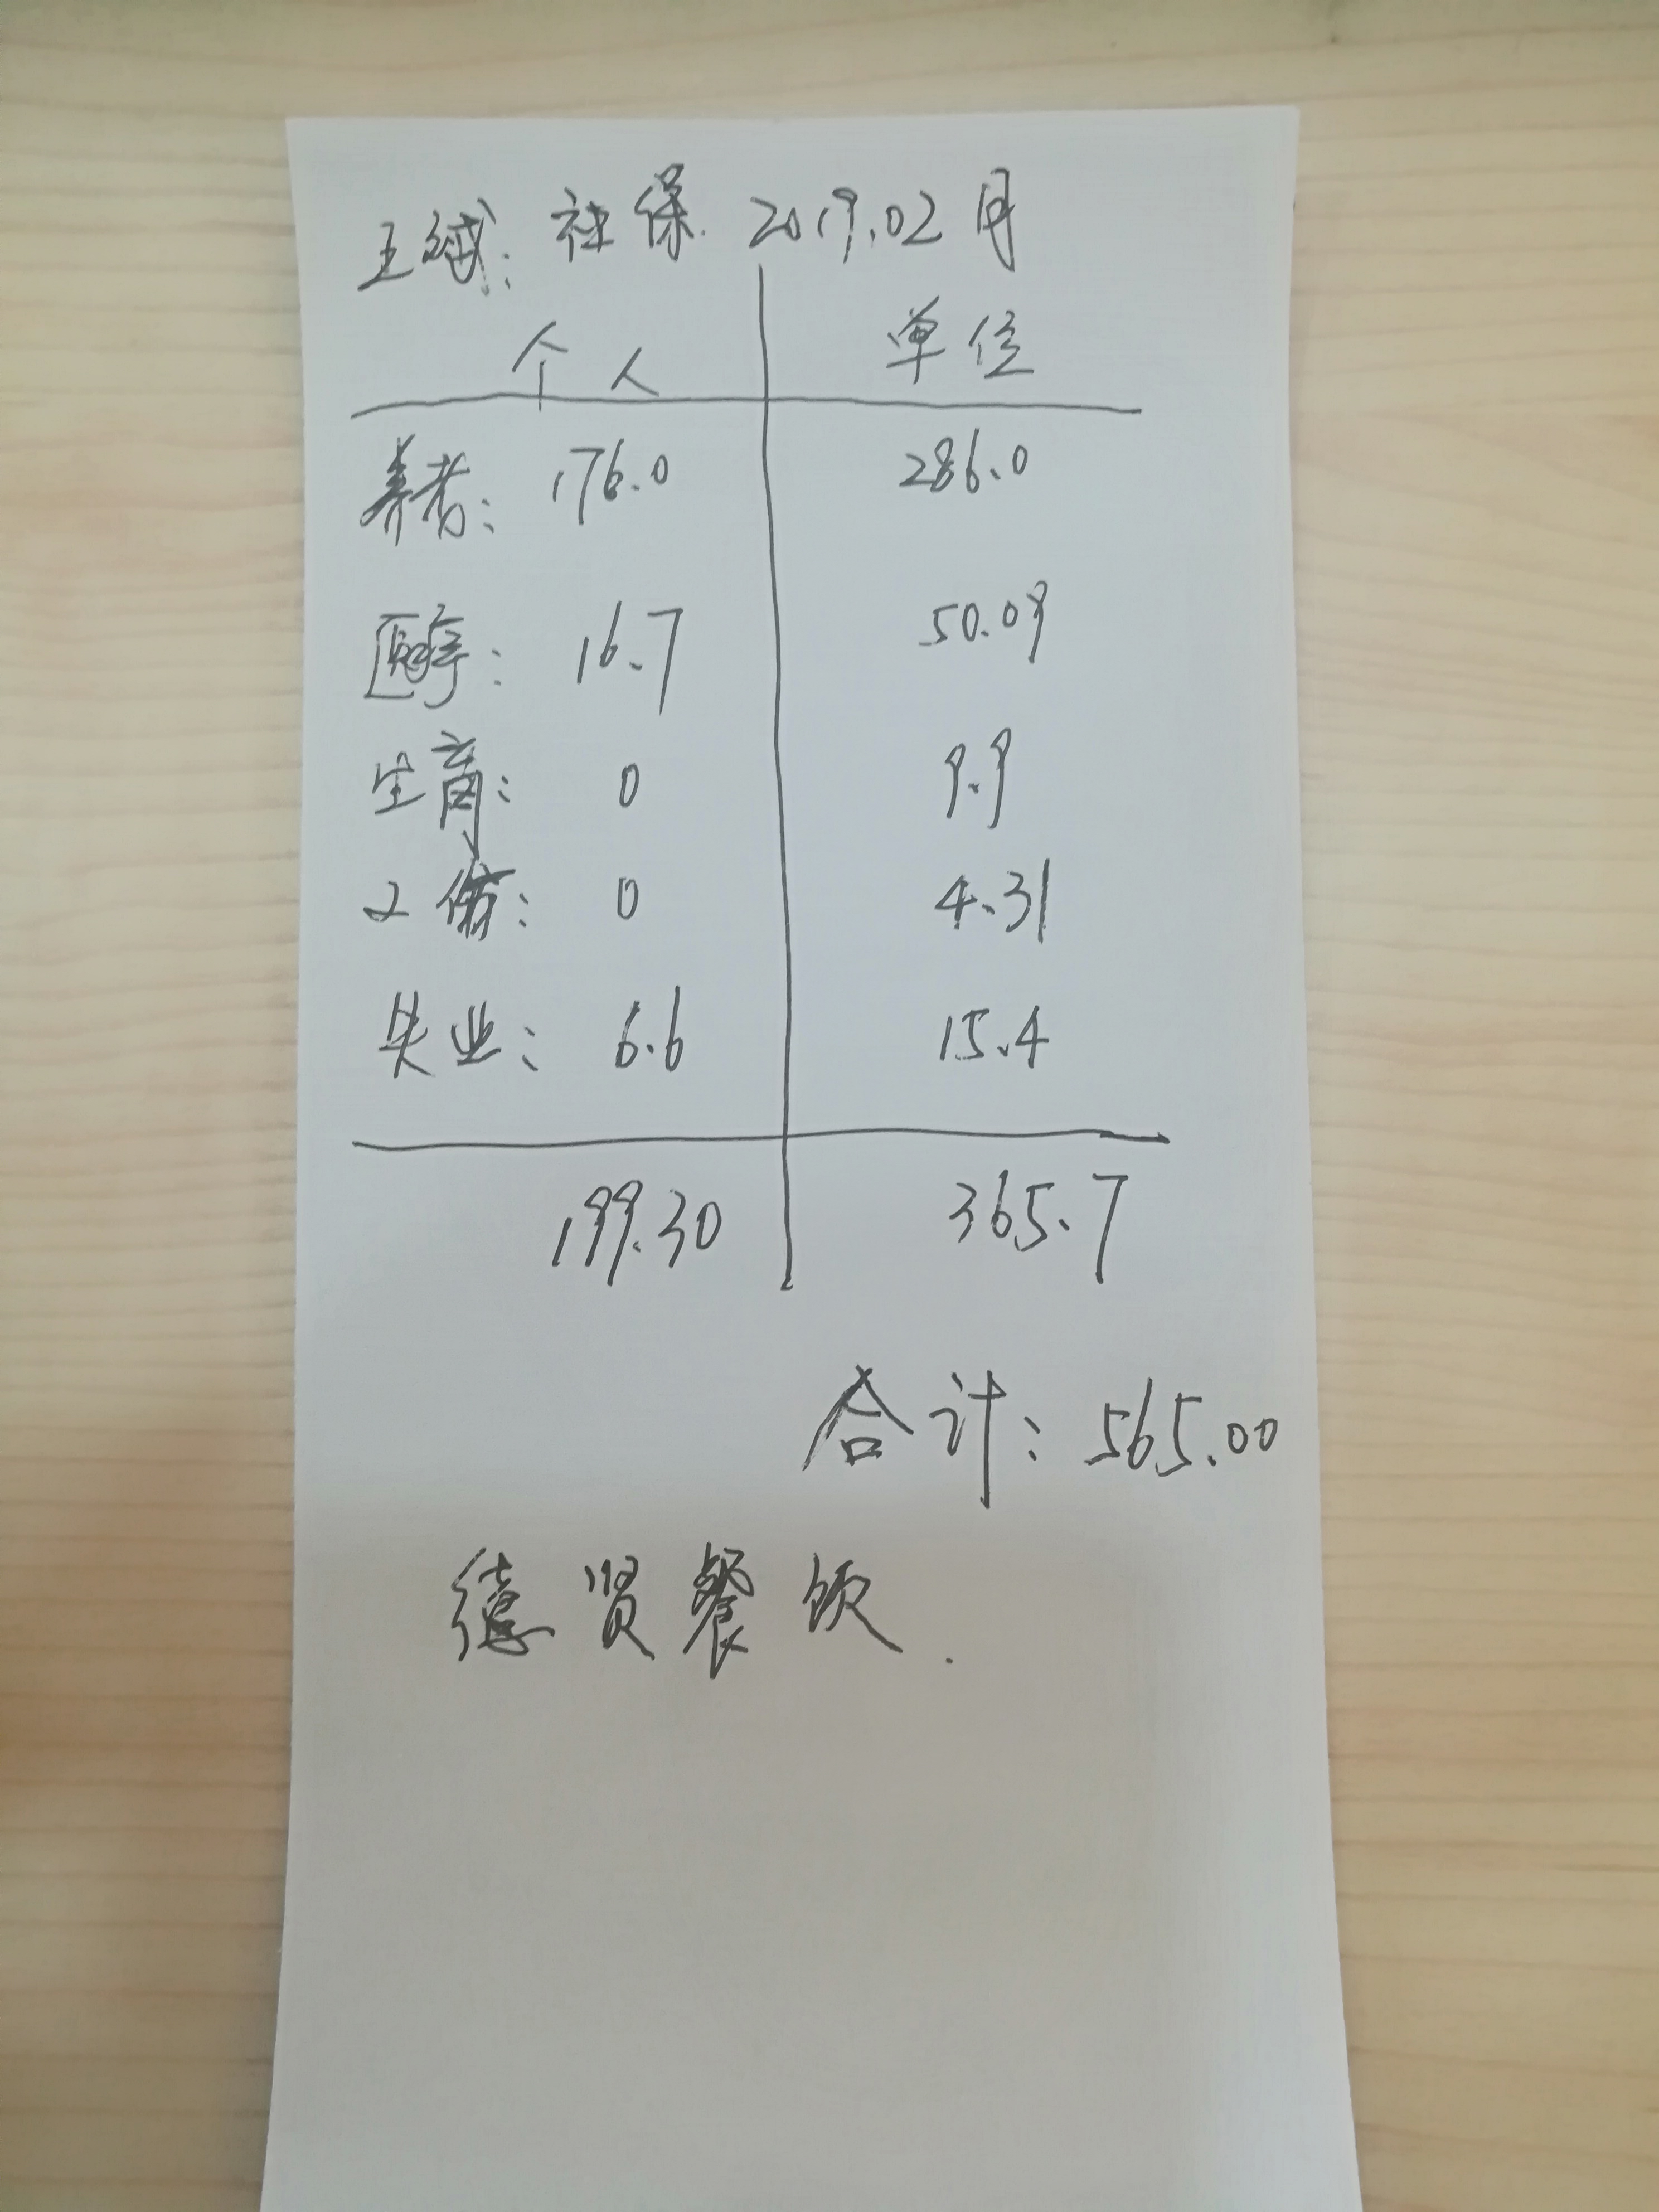 王斌: 社保. 2019.02月
个人 单位
养老: 176.0 286.0
医疗: 16.7 50.09
生育: 0 9.9
工伤: 0 4.31
失业: 6.6 15.4
199.30 365.7
合计: 565.00
德贤餐饮.